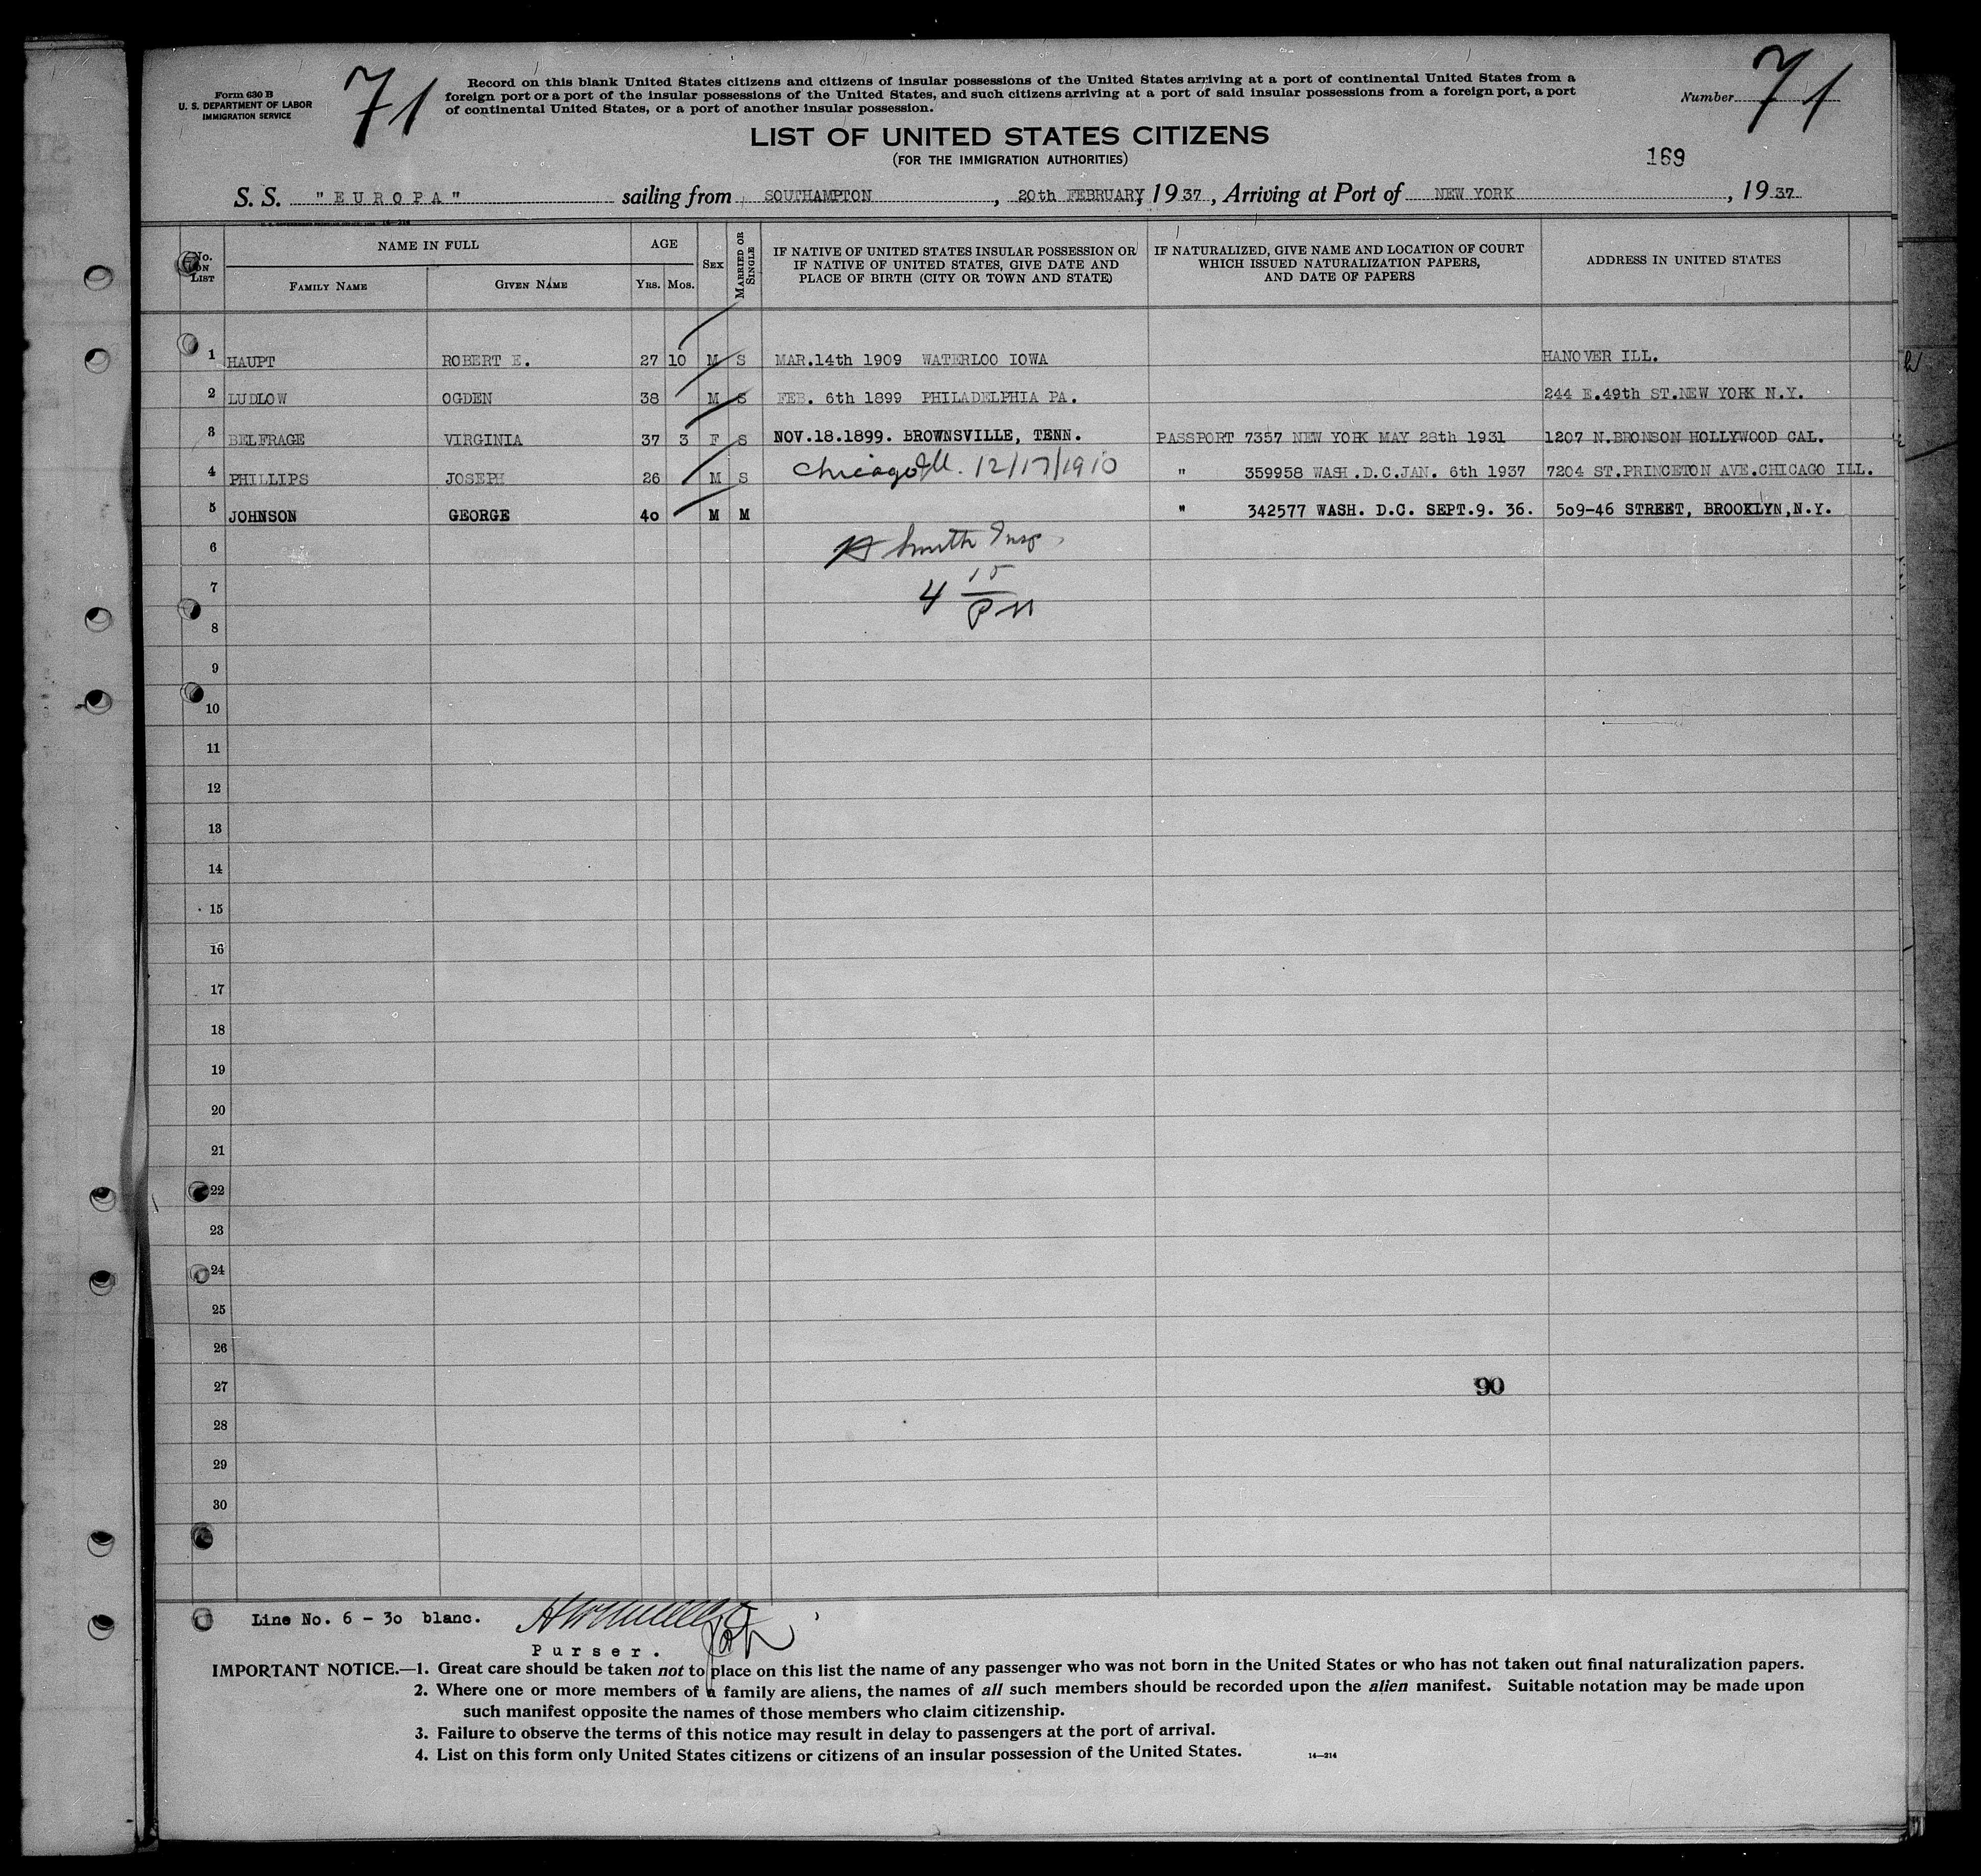 Form 630 B
U. S. DEPARTMENT OF LABOR
IMMIGRATION SERVICE
71
Record on this blank United States citizens and citizens of insular possessions of the United States arriving at a port of continental United States from a
foreign port or a port of the insular possessions of the United States, and such citizens arriving at a port of said insular possessions from a foreign port, a port
of continental United States, or a port of another insular possession.
Number 71
LIST OF UNITED STATES CITIZENS
(FOR THE IMMIGRATION AUTHORITIES)
169
S. S. "EUROPA" sailing from SOUTHAMPTON, 20th FEBRUARY, 1937, Arriving at Port of NEW YORK, 1937
No. on List NAME IN FULL AGE SEX MARRIED OR SINGLE IF NATIVE OF UNITED STATES INSULAR POSSESSION OR IF NATIVE OF UNITED STATES, GIVE DATE AND PLACE OF BIRTH (CITY OR TOWN AND STATE) IF NATURALIZED, GIVE NAME AND LOCATION OF COURT WHICH ISSUED NATURALIZATION PAPERS, AND DATE OF PAPERS ADDRESS IN UNITED STATES
FAMILY NAME GIVEN NAME YRS. MOS.
1 HAUPT ROBERT E. 27 10 M S MAR.14th 1909 WATERLOO IOWA HANOVER ILL.
2 LUDLOW OGDEN 38 M S FEB. 6th 1899 PHILADELPHIA PA. 244 E.49th ST.NEW YORK N.Y.
3 BELFRAGE VIRGINIA 37 3 F S NOV.18.1899. BROWNSVILLE, TENN. PASSPORT 7357 NEW YORK MAY 28th 1931 1207 N.BRONSON HOLLYWOOD CAL.
4 PHILLIPS JOSEPH 26 M S Chicago Ill. 12/17/1910 " 359958 WASH.D.C.JAN. 6th 1937 7204 ST.PRINCETON AVE.CHICAGO ILL.
5 JOHNSON GEORGE 40 M M " 342577 WASH. D.C. SEPT.9. 36. 509-46 STREET, BROOKLYN,N.Y.
6 Smith Insp.
7 4 15 PM
8
9
10
11
12
13
14
15
16
17
18
19
20
21
22
23
24
25
26
27 90
28
29
30
Line No. 6 - 30 blanc.
Purser.
IMPORTANT NOTICE.—1. Great care should be taken not to place on this list the name of any passenger who was not born in the United States or who has not taken out final naturalization papers.
2. Where one or more members of a family are aliens, the names of all such members should be recorded upon the alien manifest. Suitable notation may be made upon
such manifest opposite the names of those members who claim citizenship.
3. Failure to observe the terms of this notice may result in delay to passengers at the port of arrival.
4. List on this form only United States citizens or citizens of an insular possession of the United States.
14—214